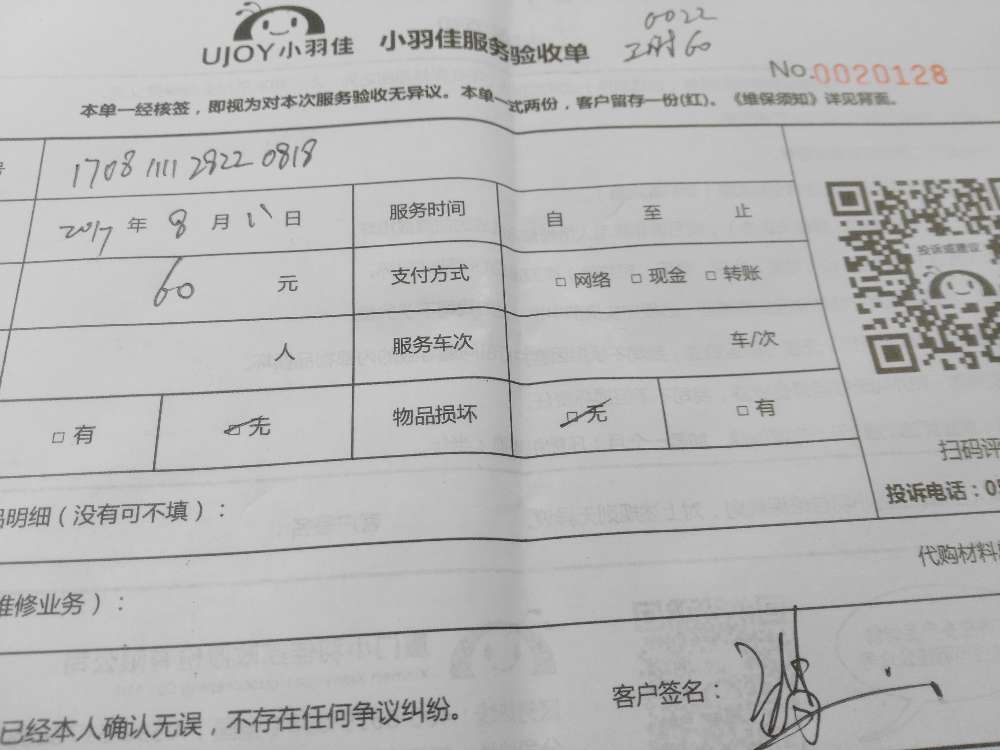 UJOY小羽佳 小羽佳服务验收单
0022
工时60
No.0020128
本单一经核签，即视为对本次服务验收无异议。本单一式两份，客户留存一份(红)。《维保须知》详见背面。
1708 1111 2822 0818
2017年8月18日 服务时间 自 至 止
60 元 支付方式 □网络 □现金 □转账
投诉或建议
人 服务车次 车/次
□有 □无 物品损坏 □无 □有
扫码评
投诉电话：05
明细（没有可不填）：
代购材料
维修业务）：
客户签名：
已经本人确认无误，不存在任何争议纠纷。